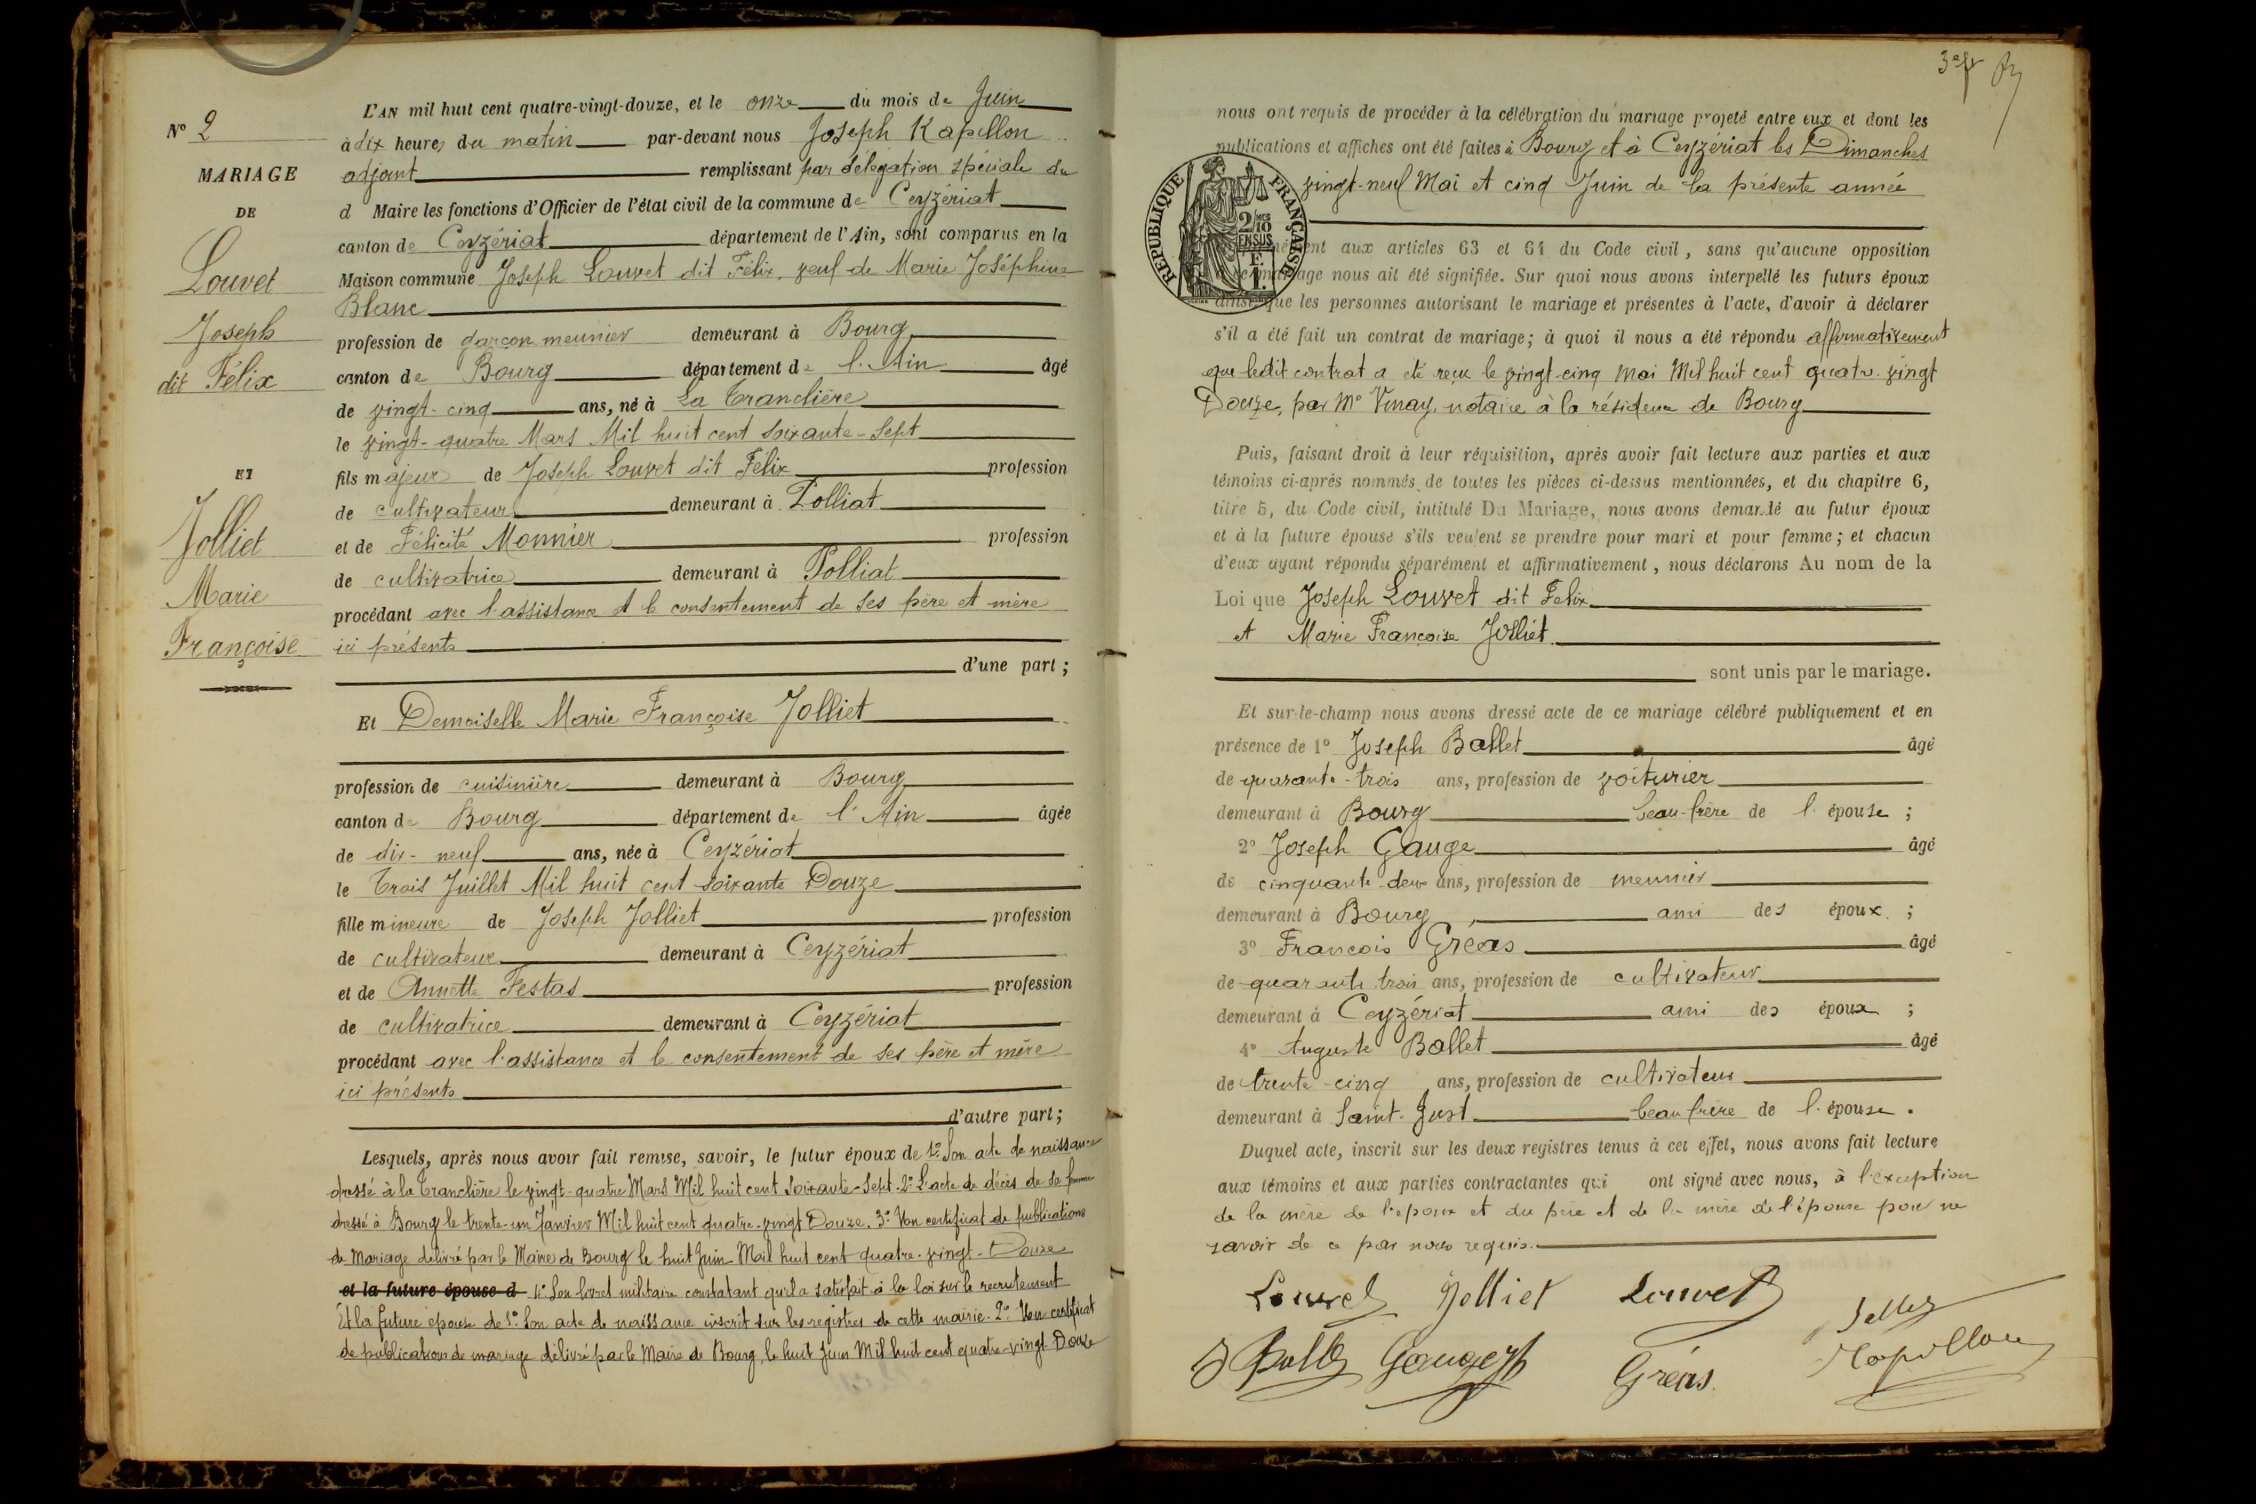 N° 2
MARIAGE
DE
Louvet
Joseph
dit Félix
ET
Jolliet
Marie
Françoise
L'AN mil huit cent quatre-vingt-douze, et le onze du mois de Juin
à dix heures du matin par-devant nous Joseph Rapillon
adjoint remplissant par délégation spéciale du
d Maire les fonctions d'Officier de l'état civil de la commune de Ceyzériat
canton de Ceyzériat département de l'Ain, sont comparus en la
Maison commune Joseph Louvet dit Félix, veuf de Marie Joséphine
Blanc
profession de garçon meunier demeurant à Bourg
canton de Bourg département de l'Ain âgé
de vingt-cinq ans, né à La Tranclière
le vingt-quatre Mars Mil huit cent soixante-sept
fils majeur de Joseph Louvet dit Félix profession
de cultivateur demeurant à Polliat
et de Félicité Monnier profession
de cultivatrice demeurant à Polliat
procédant avec l'assistance et le consentement de ses père et mère
ici présents
d'une part;
Et Demoiselle Marie Françoise Jolliet
profession de cuisinière demeurant à Bourg
canton de Bourg département de l'Ain âgée
de dix-neuf ans, née à Ceyzériat
le Trois Juillet Mil huit cent soixante Douze
fille mineure de Joseph Jolliet profession
de cultivateur demeurant à Ceyzériat
et de Annette Festas profession
de cultivatrice demeurant à Ceyzériat
procédant avec l'assistance et le consentement de ses père et mère
ici présents
d'autre part;
Lesquels, après nous avoir fait remise, savoir, le futur époux de 1° Son acte de naissance
dressé à la Tranclière le vingt-quatre Mars Mil huit cent soixante-sept. 2° L'acte de décès de sa femme
dressé à Bourg le trente-un Janvier Mil huit cent quatre-vingt Douze. 3° Un certificat de publications
de Mariage délivré par le Maire de Bourg le huit Juin Mil huit cent quatre-vingt-Douze
et la future épouse d 4° Son livret militaire constatant qu'il a satisfait à la loi sur le recrutement
Et la future épouse de 1° Son acte de naissance inscrit sur les registres de cette mairie. 2° Un certificat
de publications de mariage délivré par le Maire de Bourg, le huit Juin Mil huit cent quatre-vingt Douze
nous ont requis de procéder à la célébration du mariage projeté entre eux et dont les
publications et affiches ont été faites à Bourg et à Ceyzériat les Dimanches
vingt-neuf Mai et cinq Juin de la présente année
RÉPUBLIQUE FRANÇAISE
2/10 EN SUS
F. 1.
aux articles 63 et 64 du Code civil, sans qu'aucune opposition
mariage nous ait été signifiée. Sur quoi nous avons interpellé les futurs époux
ainsi que les personnes autorisant le mariage et présentes à l'acte, d'avoir à déclarer
s'il a été fait un contrat de mariage; à quoi il nous a été répondu affirmativement
que ledit contrat a été reçu le vingt-cinq Mai Mil huit cent quatre-vingt
Douze, par Me Vinay, notaire à la résidence de Bourg
Puis, faisant droit à leur réquisition, après avoir fait lecture aux parties et aux
témoins ci-après nommés de toutes les pièces ci-dessus mentionnées, et du chapitre 6,
titre 5, du Code civil, intitulé Du Mariage, nous avons demandé au futur époux
et à la future épouse s'ils veulent se prendre pour mari et pour femme; et chacun
d'eux ayant répondu séparément et affirmativement, nous déclarons Au nom de la
Loi que Joseph Louvet dit Félix
et Marie Françoise Jolliet
sont unis par le mariage.
Et sur-le-champ nous avons dressé acte de ce mariage célébré publiquement et en
présence de 1° Joseph Ballet âgé
de quarante-trois ans, profession de voiturier
demeurant à Bourg beau-frère de l'épouse;
2° Joseph Gauge âgé
de cinquante-deux ans, profession de meunier
demeurant à Bourg, ami des époux;
3° François Gréas âgé
de quarante trois ans, profession de cultivateur
demeurant à Ceyzériat ami des époux;
4° Auguste Ballet âgé
de trente-cinq ans, profession de cultivateur
demeurant à Saint-Just beau frère de l'épouse.
Duquel acte, inscrit sur les deux registres tenus à cet effet, nous avons fait lecture
aux témoins et aux parties contractantes qui ont signé avec nous, à l'exception
de la mère de l'époux et du père et de la mère de l'épouse pour ne
savoir de ce par nous requis.
Louvet Jolliet Louvet
Gréas Rapillon